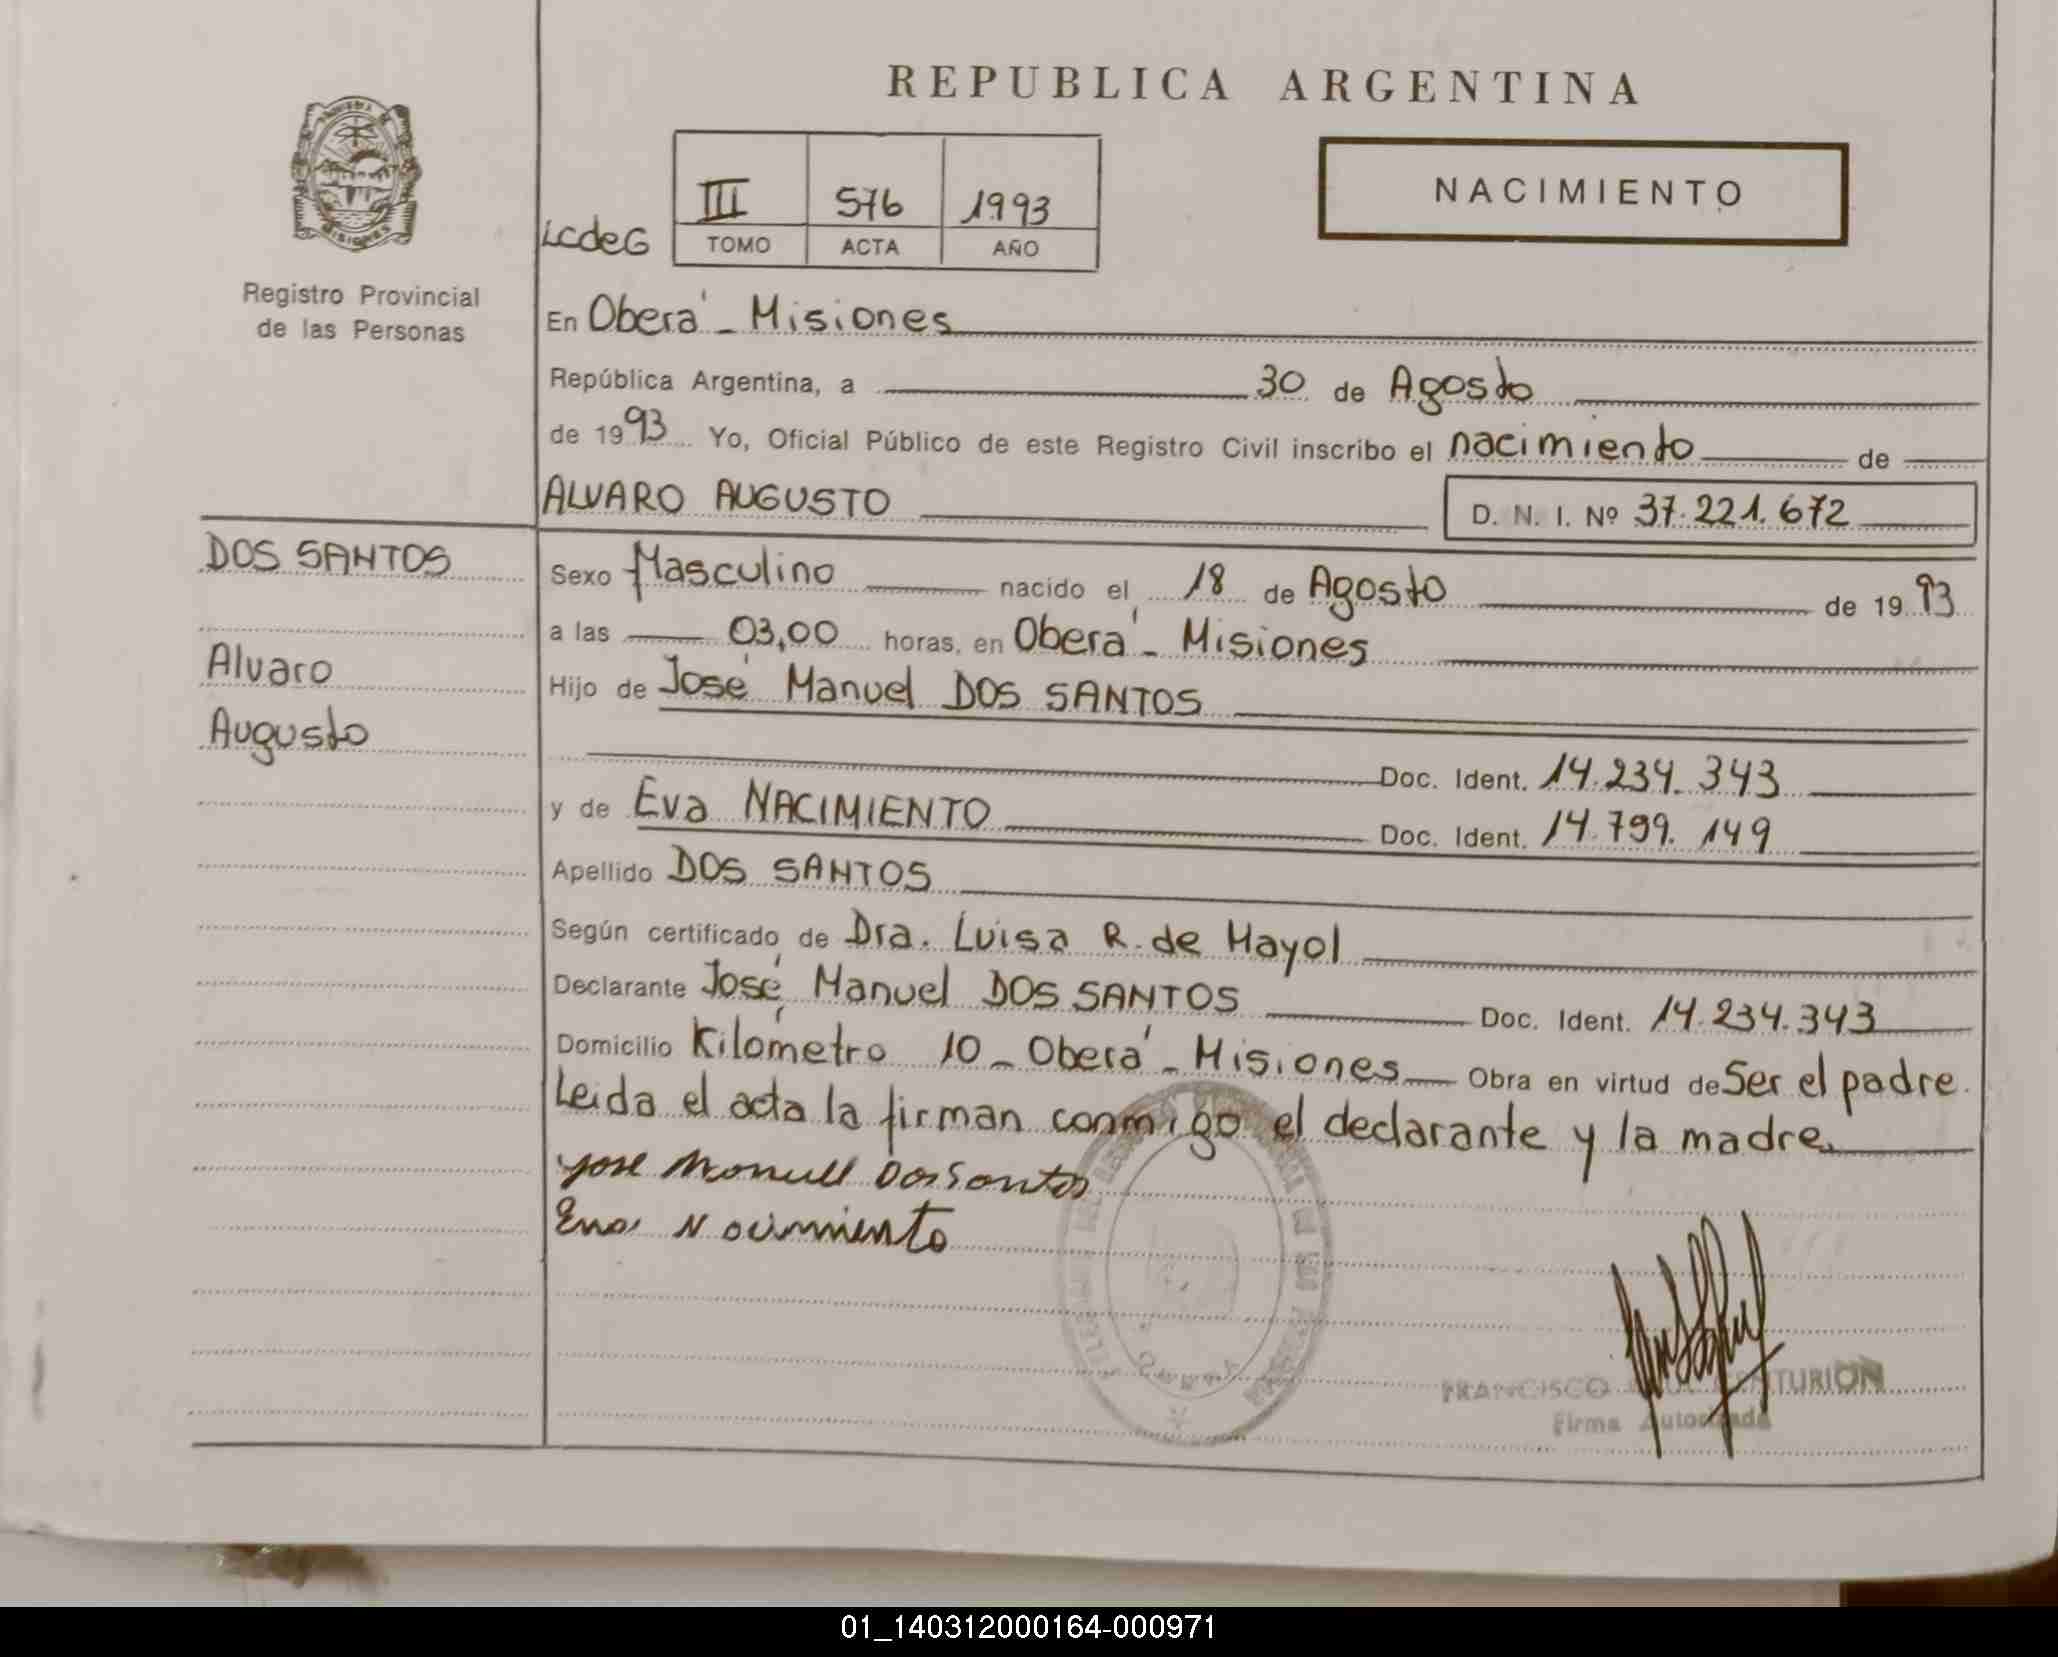 REPUBLICA ARGENTINA
NACIMIENTO
III 576 1993
LCdeG TOMO ACTA AÑO
MISIONES
Registro Provincial
de las Personas
En Oberá - Misiones
República Argentina, a 30 de Agosto
de 1993 Yo, Oficial Público de este Registro Civil inscribo el nacimiento de
ALVARO AUGUSTO D. N. I. Nº 37.221.672
DOS SANTOS
Alvaro
Augusto
Sexo Masculino nacido el 18 de Agosto de 1993
a las 03,00 horas, en Oberá - Misiones
Hijo de José Manuel DOS SANTOS
Doc. Ident. 14.234.343
y de Eva NACIMIENTO Doc. Ident. 14.799.149
Apellido DOS SANTOS
Según certificado de Dra. Luisa R. de Mayol
Declarante José Manuel DOS SANTOS Doc. Ident. 14.234.343
Domicilio Kilómetro 10 - Oberá - Misiones Obra en virtud de Ser el padre.
Leida el acta la firman conmigo el declarante y la madre.
Jose Manuel Dos Santos
Eva Nacimiento
FRANCISCO CENTURION
Firma Autorizada
01_140312000164-000971